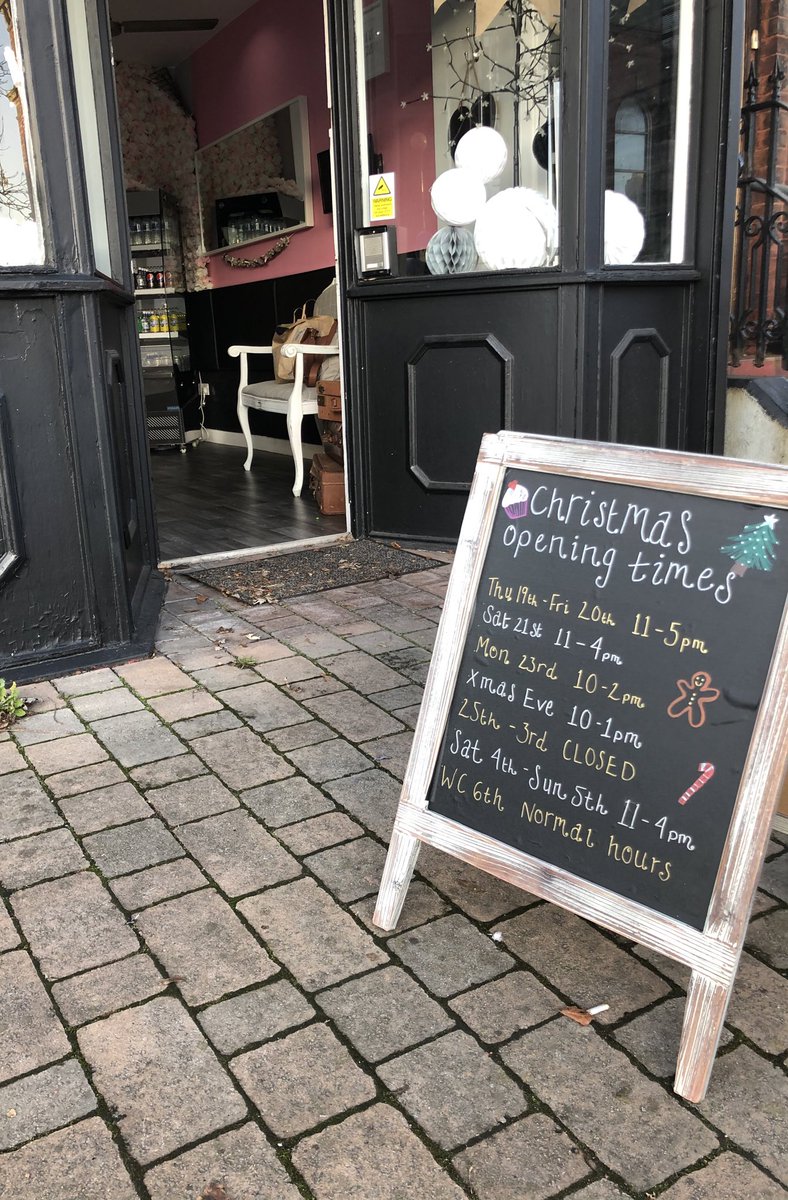 WARNING
Christmas
opening times
Thu 19th - Fri 20th 11-5pm
Sat 21st 11-4pm
Mon 23rd 10-2pm
Xmas Eve 10-1pm
25th - 3rd CLOSED
Sat 4th - Sun 5th 11-4pm
WC 6th Normal hours